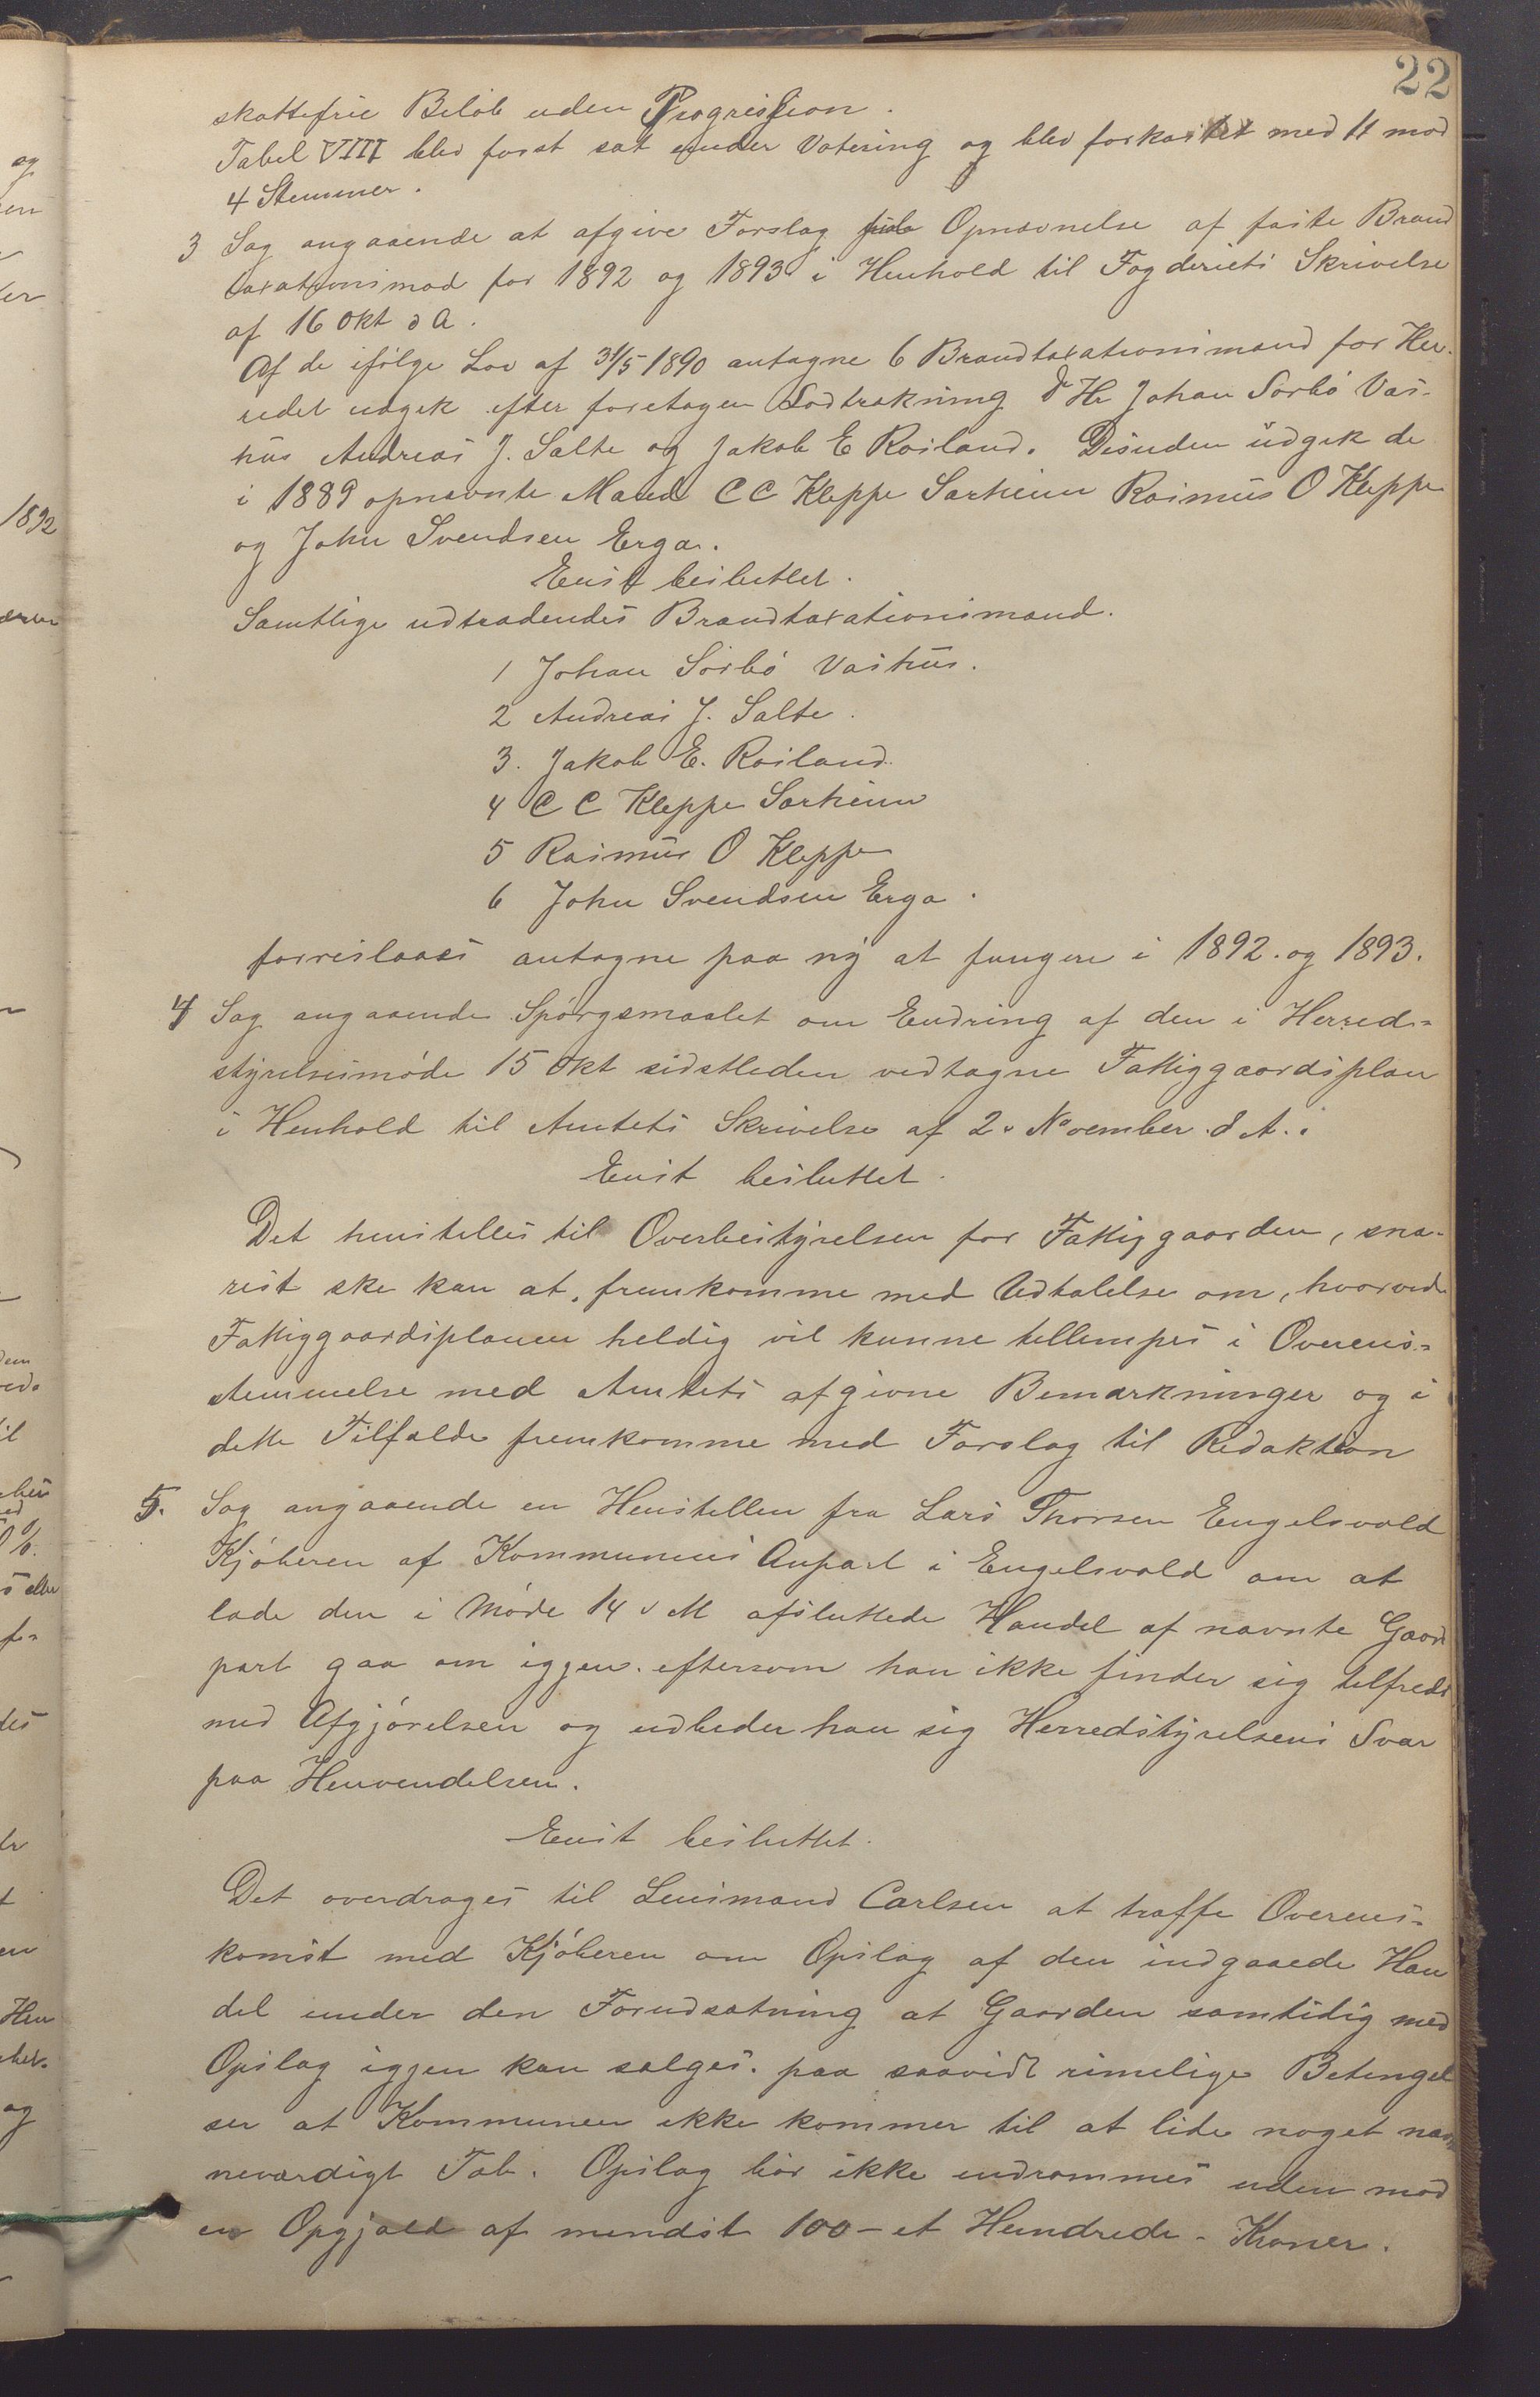 22
skattefrie Beløb uden Progression.
Tabel VIII blev først sat under Votering og blev forkastet med 11 mod
4 Stemmer.
3 Sag angaaende at afgive Forslag Opnævnelse af faste Brand
taxationsmænd for 1892 og 1893 i Henhold til Fogderiets Skrivelse
af 16 Okt d A.
Af de ifølge Lov af 31/5 1890 antagne 6 Brandtaxationsmænd for Her-
redet udgik efter foretagen Lodtrækning Johan Sørbø Vas-
hus Andreas J. Salte og Jakob E Rosland. Desuden udgik de
i 1889 opnævnte Mænd C C Kleppe Sørheim Rasmus O Kleppe
og John Svendsen Erga.
Enst besluttet.
Samtlige udtrædendes Brandtaxationsmænd.
1 Johan Sørbø Vashus.
2 Andreas J. Salte.
3. Jakob E. Rosland.
4 C C Kleppe Sørheim
5 Rasmus O Kleppe
6 John Svendsen Erga.
forreslaaes antagne paa ny at fungere i 1892. og 1893.
4 Sag angaaende Spørgsmaalet om Endring af den i Herreds-
styrelsesmøde 15 Okt sidstleden vedtagne Fattiggaardsplan
i Henhold til Amtets Skrivelse af 2. November. d A..
Enst besluttet.
Det henstilles til Overbestyrelsen for Fattiggaarden, sna-
rest ske kan at, fremkomme med Udtalelse om, hvorvidt
Fattiggaardsplanen heldig vil kunne tellempes i Overens-
stemmelse med Amtets afgivne Bemærkninger og i
dette Tilfælde fremkomme med Forslag til Redaktion
5. Sag angaaende en Henstillen fra Lars Thorsen Engelsvold
Kjøberen af Kommunens Anpart i Engelsvold om at
lade den i Møde 14 v M afsluttede Handel af nævnte Gaard
part gaa om iggjen. eftersom han ikke finder sig tilfreds
med Afgjørelsen og udbeder han sig Herredstyrelsens Svar
paa Henvendelsen.
Enst besluttet.
Det overdrages til Lensmand Carlsen at træffe Overens-
komst med Kjøberen om Opslag af den indgaaede Han
del under den Forudsætning at Gaarden samtidig med
Opslag iggjen kan sælges. paa saavidt rimelige Betingel
ser at Kommunen ikke kommer til at lide noget næv
neværdigt Tab. Opslag bør ikke indrømmes uden mod
en Opgjæld af mindst 100 - et Hundrede - Kroner.